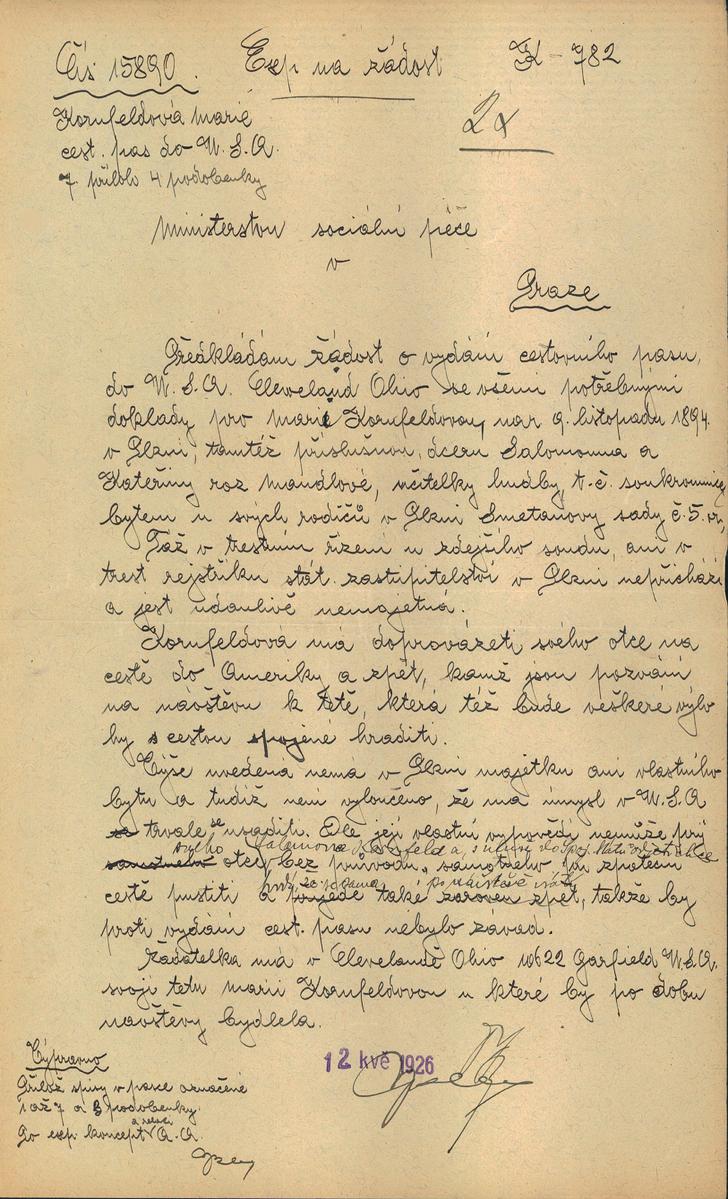 Čís 15890. Exp na žádost K - 782
Kornfeldová Marie
cest. pas do U.S.A. 2x
7 příloh 4 podobenky
Ministerstvu sociální péče
v
Praze
Předkládám žádost o vydání cestovního pasu
do U.S.A. Cleveland Ohio se všemi potřebnými
doklady pro Marii Kornfeldovou, nar 9. listopadu 1894.
v Plzni, tamtéž příslušnou, dceru Salomouna a
Kateřiny roz Mandlové, učitelky hudby, t. č. soukromnice
bytem u svých rodičů v Plzni Smetanovy sady č. 5.
Táž v trestním řízení u zdejšího soudu, ani v
trest rejstříku stát. zastupitelství v Plzni nepřichází
a jest údanlivě nemajetná.
Kornfeldová má doprovázeti svého otce na
cestě do Ameriky a zpět, kamž jsou pozváni
na návštěvu k tetě, která též bude veškeré výlo
hy s cestou spojené hraditi.
Výše uvedená nemá v Plzni majetku ani vlastního
bytu a tudíž není vyloučeno, že má úmysl v U.S.A
trvale se usaditi. Dle její vlastní výpovědi nemůže prý
svého Salamona Kornfelda
samotného otce bez průvodu samotného na zpáteční
po návštěvě
cestě pustiti a přijede také zároven zpět, takže by
proti vydání cest. pasu nebylo závad.
Žadatelka má v Clevelandě Ohio 10622 Garfield U.S.A.
svoji tetu Marii Kornfeldovou u které by po dobu
návštěvy bydlela.
12 kvě 1926
Výpravno
Přilož spisy v pasce označené
1 až 7 a 3 podobenky
Po exp. koncept A. A.